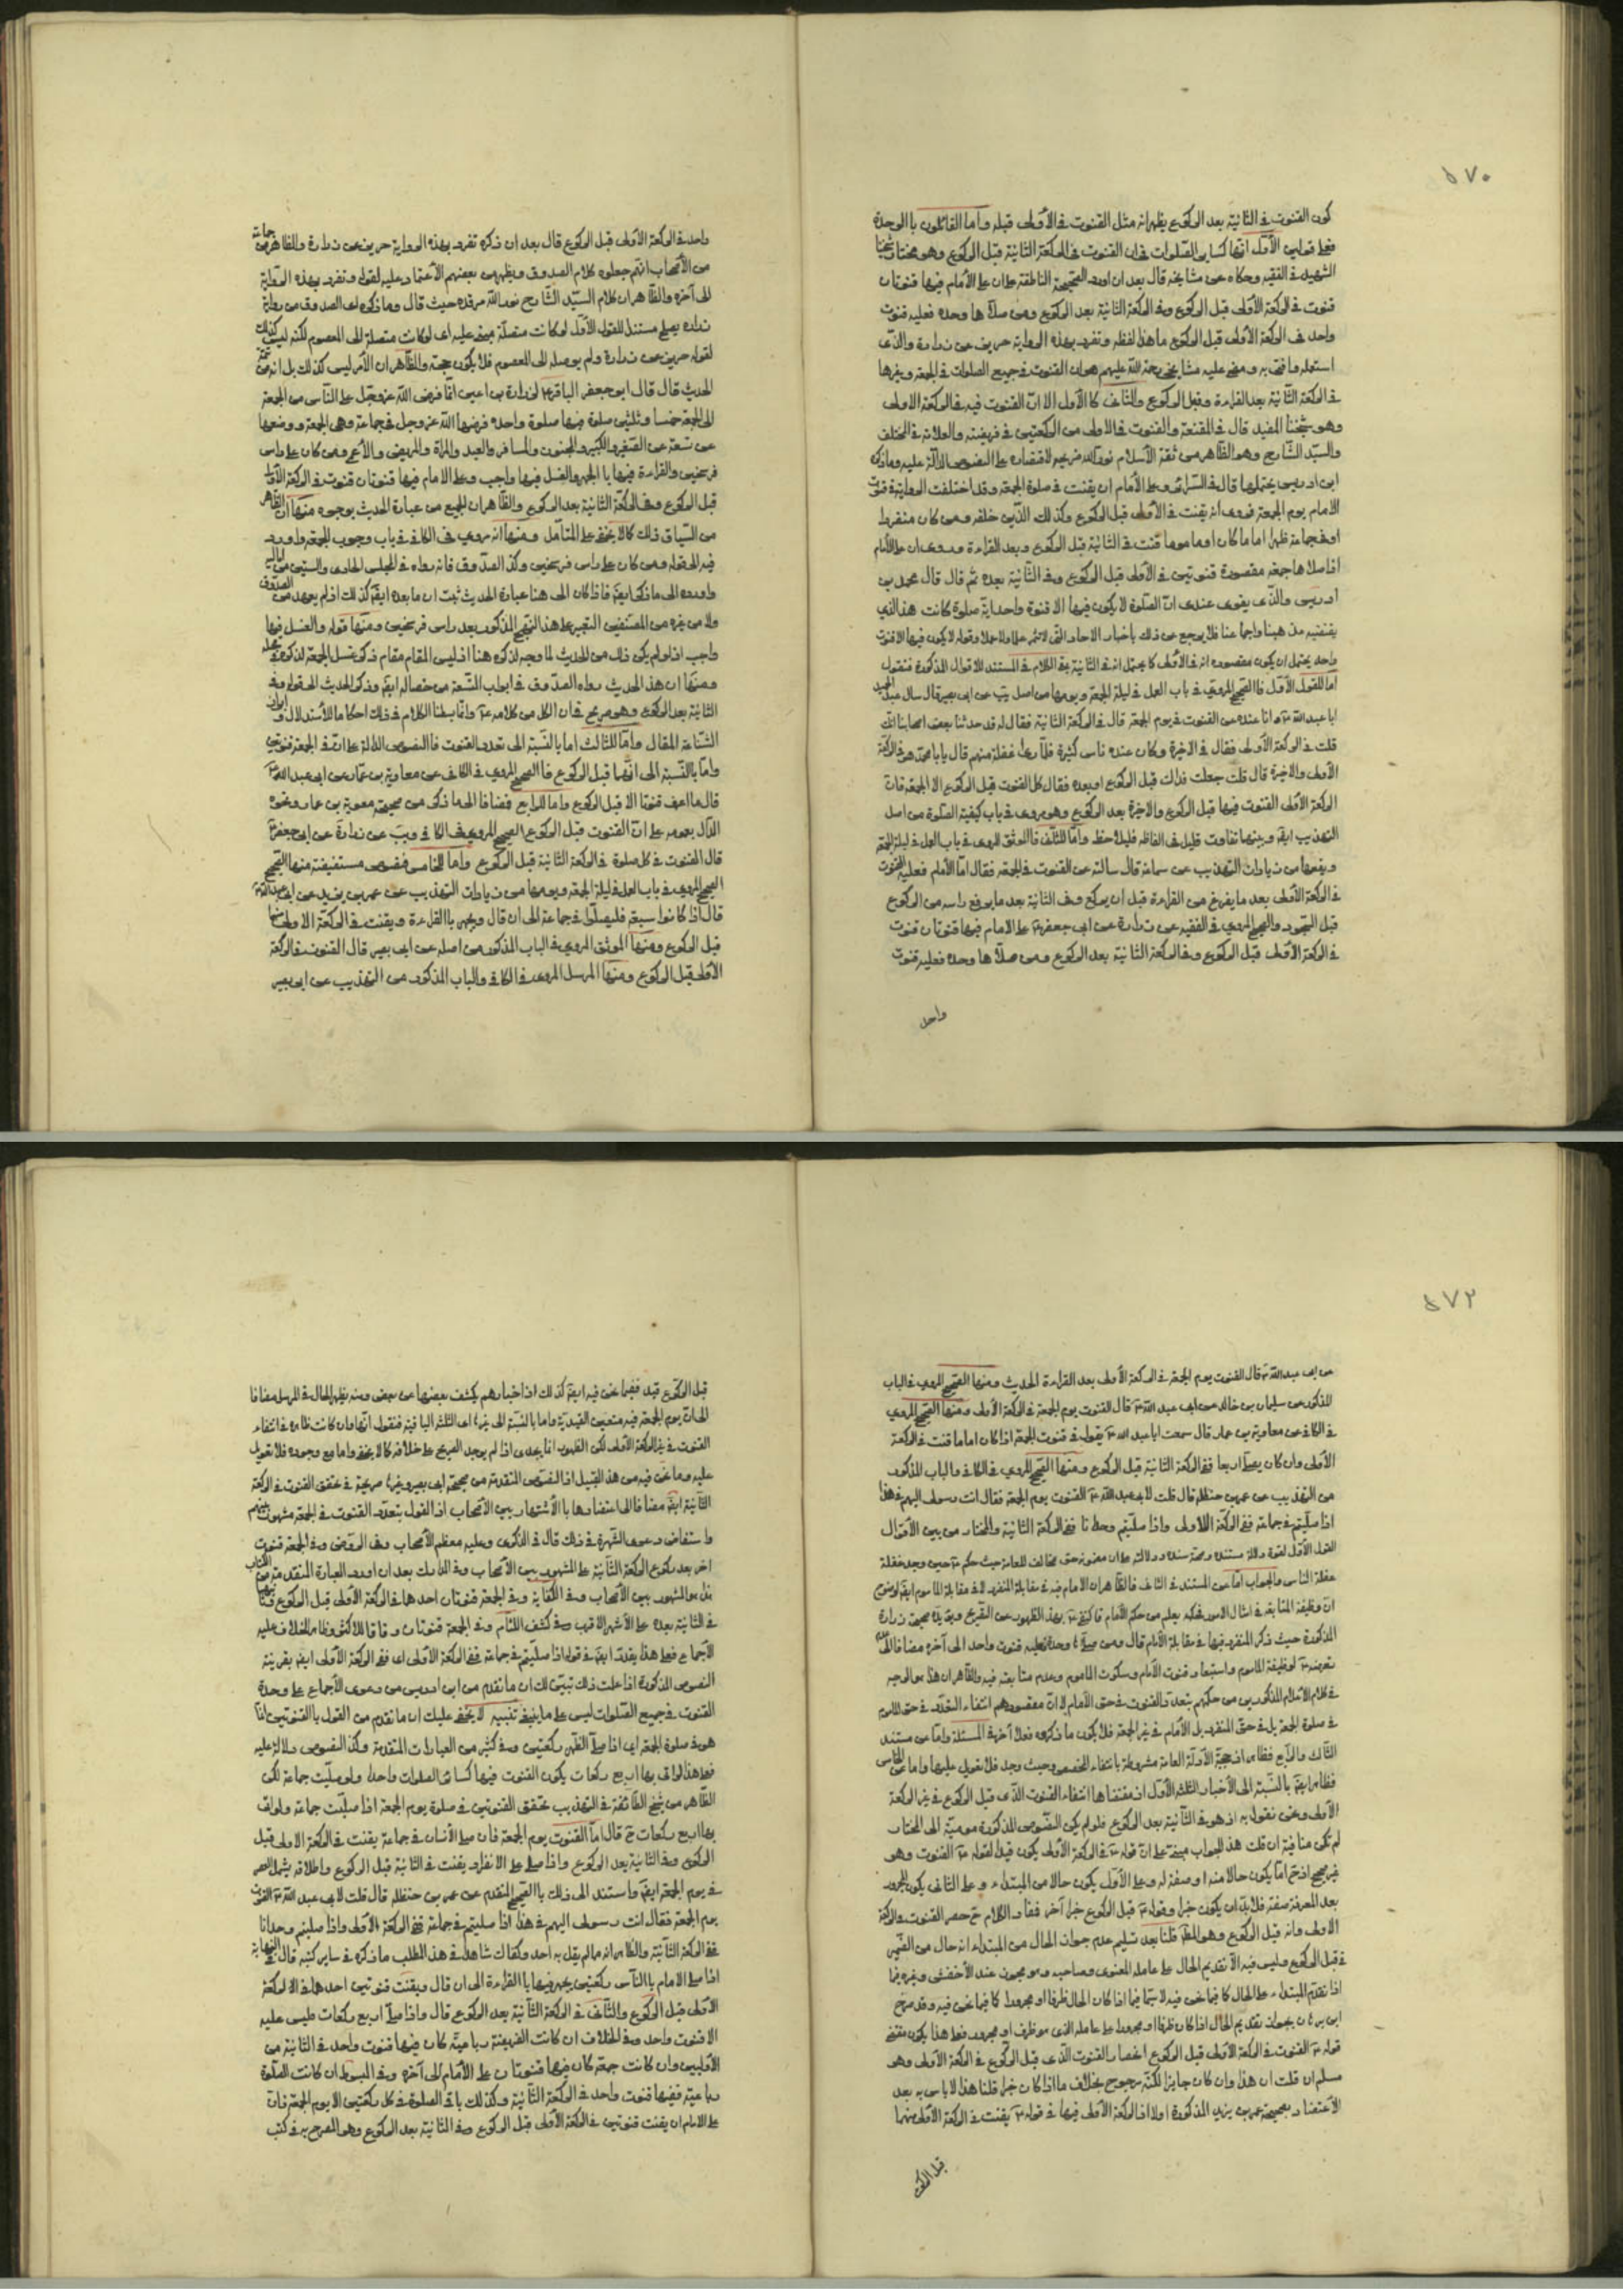 ٥٧٠
كون القنوت في الثانية بعد الركوع يظهر انه مثل القنوت في الأولى قبله واما القائلون بالوحدة
فعلى قولين الأول انها كساير الصلوات في ان القنوت في الركعة الثانية قبل الركوع وهو مختار شيخنا
الشهيد في الفقيه وحكاه عن مشايخه قال بعد ان اورد الصحيحة الناطقة على ان على الأمام فيها قنوتان
قنوت في الركعة الأولى قبل الركوع وفي الركعة الثانية بعد الركوع ومن صلاها وحده فعليه قنوت
واحد في الركعة الأولى قبل الركوع ما هذا لفظه وتفرد بهذه الرواية حريز عن زرارة والذي
استعمله وافتى به ومضى عليه مشايخي رحمة الله عليهم هو ان القنوت في جميع الصلوات في الجمعة وغيرها
في الركعة الثانية بعد القراءة وقبل الركوع والثاني كالأول الا ان القنوت فيه في الركعة الاولى
وهو شيخنا المفيد قال في المقنعة والقنوت في الاولى من الركعتين في فريضته والعلامة في المختلف
والسيد الشارح وهو الظاهر من ثقة الأسلام نور الله ضريحه لاقتصاره على النصوص الدالة عليه وما ذكره
ابن ادريس يحتملها قال في السرائر وعلى الأمام ان يقنت في صلوة الجمعة وقد اختلفت الرواية في قنوت
الامام يوم الجمعة فروى انه يقنت في الأولى قبل الركوع وكذلك الذين خلفه ومن كان منفردا
او في جماعة ظهرا اماما كان او ماموما قنت في الثانية قبل الركوع وبعد القراءة وروى ان على الأمام
اذا صلاها جمعة مقصورة قنوتين في الأولى قبل الركوع وفي الثانية بعده ثم قال قال محمد بن
ادريس والذي يقوى عندى ان الصلوة لا يكون فيها الا قنوت واحد اية صلوة كانت هذا الذي
يقتضيه مذهبنا واجماعنا فلا يرجع عن ذلك بأخبار الاحاد التي لا تثمر علما ولا عملا وقوله لا يكون فيها الا قنوت
واحد يحتمل ان يكون مقصوده انه في الأولى كما يحتمل انه في الثانية بقي الكلام في المستند للاقوال المذكورة فنقول
اما للقول الأول فالصحيح المروي في باب العمل في ليلة الجمعة ويومها من اصل يب عن ابي بصير قال سال عبد الحميد
ابا عبد الله ع وانا عنده عن القنوت في يوم الجمعة قال في الركعة الثانية فقال له قد حدثنا بعض اصحابنا انك
قلت في الركعة الأولى فقال في الاخيرة وكان عنده ناس كثيرة فلما راى غفلة منهم قال يا با محمد هو في الركعة
الأولى والاخيرة قال قلت جعلت فداك قبل الركوع او بعده فقال كل القنوت قبل الركوع الا الجمعة فان
الركعة الأولى القنوت فيها قبل الركوع والاخيرة بعد الركوع وهو مروى في باب كيفية الصلوة من اصل
التهذيب ايضا وبينهما تفاوت قليل في الفاظه فليلاحظ واما للثاني فالموثق المروى في باب العمل في ليلة الجمعة
ويومها من زيادات التهذيب عن سماعة قال سالته عن القنوت في الجمعة فقال اما الأمام فعليه القنوت
في الركعة الأولى بعد ما يفرغ من القراءة قبل ان يركع وفي الثانية بعد ما يرفع راسه من الركوع
قبل السجود والصحيح المروي في الفقيه عن زرارة عن ابي جعفر ع على الامام فيها قنوتان قنوت
في الركعة الأولى قبل الركوع وفي الركعة الثانية بعد الركوع ومن صلاها وحده فعليه قنوت
واحد
واحد في الركعة الأولى قبل الركوع قال بعد ان ذكره تفرد بهذه الرواية حريز عن زرارة والظاهر من جماعة
من الأصحاب انهم جعلوه كلام الصدوق ويظهر من بعضهم الأعتماد عليه لقوله وتفرد بهذه الرواية
الى آخره والظاهر ان كلام السيد الشارح نور الله مرقده حيث قال وما ذكره اى الصدوق من رواية
زراره يصلح مستندا للقول الأول لو كانت متصلة مبنى عليه اى لو كانت متصلة الى المعصوم لكنه ليس كذلك
لقوله حريز عن زرارة ولم يوصله الى المعصوم فلا يكون حجة والظاهر ان الأمر ليس كذلك بل انه من تتمة
الحديث قال قال ابو جعفر الباقر ع لزرارة بن اعين انما فرض الله عز وجل على الناس من الجمعة
الى الجمعة خمسا وثلثين صلوة فيها صلوة واحدة فرضها الله عز وجل في جماعة وهى الجمعة ووضعها
عن تسعة عن الصغير والكبير والمجنون والمسافر والعبد والمراة والمريض والأعمى ومن كان على راس
فرسخين والقراءة فيها بالجهر والغسل فيها واجب وعلى الامام فيها قنوتان قنوت في الركعة الأولى
قبل الركوع وفي الركعة الثانية بعد الركوع والظاهر ان الجميع من عبارة الحديث بوجوه منها ان الظاهر
من السياق ذلك كما لا يخفى على المتأمل ومنها انه مروى في الكافي في باب وجوب الجمعة واورد
فيه الى قوله ومن كان على راس فرسخين وكذا الصدوق فانه رواه في المجلس الحادى والستين من اماليه
واورده الى ما ذكر ايضا فاذا كان الى هنا عبارة الحديث ثبت ان ما بعده ايضا كذلك اذ لم يعهد من الصدوق
ولا من غيره من المصنفين التعبير على هذا النهج المذكور بعد راس فرسخين ومنها قوله والغسل فيها
واجب اذ لو لم يكن ذلك من الحديث لما وجه لذكره هنا اذ ليس المقام مقام ذكر غسل الجمعة لذكره في محله
ومنها ان هذا الحديث رواه الصدوق في ابواب التسعة من خصاله ايضا وذكر الحديث الى قوله وفي
الثانية بعد الركوع وهو صريح في ان الكل من كلامه ع وانما بسطنا الكلام في ذلك احكاما للأستدلال و
واما للثالث اما بالنسبة الى تعدد القنوت فالنصوص الدالة على ان في الجمعة قنوتين
واما بالنسبة الى انهما قبل الركوع فالصحيح المروي في الكافي عن معاوية بن عمار عن ابي عبد الله ع
قال ما اعرف قنوتا الا قبل الركوع واما للرابع فمضافا الى ما ذكر من صحيحة معوية بن عمار ونحوه
الدال بعمومه على ان القنوت قبل الركوع الصحيح المروي في الكافي ويب عن زرارة عن ابي جعفر ع
قال القنوت في كل صلوة في الركعة الثانية قبل الركوع واما للخامس فنصوص مستفيضة منها الصحيح
الصحيح المروي في باب العمل في ليلة الجمعة ويومها من زيادات التهذيب عن عمر بن يزيد عن ابي عبد الله ع
قال اذا كانوا سبعة فليصلوا في جماعة الى ان قال ويجهر بالقراءة ويقنت في الركعة الاولى منها
قبل الركوع ومنها الموثق المروي في الباب المذكور من اصله عن ابي بصير قال القنوت في الركعة
الأولى قبل الركوع ومنها المرسل المروى في الكافي والباب المذكور من التهذيب عن ابي بصير
٥٧٢
عن ابي عبد الله ع قال القنوت يوم الجمعة في الركعة الأولى بعد القراءة الحديث ومنها الصحيح المروي في الباب
المذكور عن سليمان بن خالد عن ابي عبد الله ع قال القنوت يوم الجمعة في الركعة الأولى ومنها الصحيح المروي
في الكافي عن معاوية بن عمار قال سمعت ابا عبد الله ع يقول في قنوت الجمعة اذا كان اماما قنت في الركعة
الأولى وان كان يصلى اربعا ففي الركعة الثانية قبل الركوع ومنها الصحيح المروي في الكافي والباب المذكور
من التهذيب عن عمر بن حنظلة قال قلت لابي عبد الله ع القنوت يوم الجمعة فقال انت رسولى اليهم في هذا
اذا صليتم في جماعة ففي الركعة الاولى واذا صليتم وحدانا ففي الركعة الثانية والمختار من بين الأقوال
القول الأول لقوة دلالة مستنده وصحة سنده ودلالته على ان مضمونه حق مخالف للعامة حيث حكم ع حين وجد غفلة
غفلة الناس والجواب اما عن المستند في الثاني فالظاهر ان الامام فيه في مقابلة المنفرد لا في مقابلة الماموم ايضا لوضوح
ان وظيفة المتابعة في امثال الامور فحكمه يعلم من حكم الأمام فاكتفى ع بهذا الظهور عن التصريح ويؤيده صحيح زرارة
المذكورة حيث ذكر المنفرد فيها في مقابلة الأمام قال ومن صلاها وحده فعليه قنوت واحد الى آخره مضافا الى عدم
تعرضه ع لوظيفة الماموم واستبعاد قنوت الأمام وسكوت الماموم وعدم متابعته فيه والظاهر ان هذا هو الوجه
في كلام الاعلام المذكورين من حكمهم بتعدد القنوت في حق الأمام لا ان مقصودهم انتفاء التعدد في حق الماموم
في صلوة الجمعة بل في حق المنفرد بل الأمام في غير الجمعة فلا يكون ما ذكروه قولا آخر في المسئلة واما عن مستند
الثالث والرابع فظاهر اذ حجية الأدلة العامة مشروطة بانتفاء المخصص وحيث وجد فلا تعويل عليها واما عن الخامس
فظاهر ايضا بالنسبة الى الأخبار الثلثة الأول اذ مقتضاها انتفاء القنوت الذي قبل الركوع في غير الركعة
الأولى ونحن نقول به اذ هو في الثانية بعد الركوع فلو لم يكن النصوص المذكورة مومية الى المختار
لم تكن منافية ان قلت هذا الجواب مبنى على ان قوله ع في الركعة الأولى يكون قيدا لقوله ع القنوت وهو
غير صحيح اذ ح اما يكون حالا منه او صفة له وعلى الأول يكون حالا من المبتداء وعلى الثاني يكون المجرور
بعد المعرفة صفة فلا بد ان يكون خبرا وقوله ع قبل الركوع خبرا آخر فمفاد الكلام ح حصر القنوت في الركعة
الاولى وانه قبل الركوع وهو المط قلنا بعد تسليم عدم جواز الحال من المبتداء انه حال من الضمير
في قبل الركوع وليس فيه الا تقديم الحال على عامله المعنوى وصاحبه وهو مجوز عند الأخفش وغيره فيما
اذا تقدم المبتداء على الحال كما فيما نحن فيه لا سيما فيما اذا كان الحال ظرفا او مجرورا كما فيما نحن فيه وقد صرح
ابن برهان بجواز تقديم الحال اذا كان ظرفا او مجرورا على عامله الذى هو ظرف او مجرور فعلى هذا يكون مقتضى
قوله ع القنوت في الركعة الأولى قبل الركوع انحصار القنوت الذى قبل الركوع في الركعة الأولى وهو
مسلم ان قلت ان هذا وان كان جايزا لكنه مرجوح بخلاف ما اذا كان خبرا قلنا هذا لا باس به بعد
الأعتضاد بصحيحة عمر بن يزيد المذكورة اولا اذ الركعة الأولى فيها في قوله ع يقنت في الركعة الأولى منهما
قبل الركوع
قبل الركوع قيد ففيما نحن فيه ايضا كذلك اذ اخبارهم يكشف بعضها عن بعض ومنه يظهر الحال في المرسل مضافا
الى ان يوم الجمعة فيه متعين القيدية واما بالنسبة الى غيرها اى الثلثة الباقية فنقول انها وان كانت ظاهرة في انتفاء
القنوت في غير الركعة الأولى لكن الظهور انما يجدى اذا لم يوجد الصريح على خلافه كما لا يخفى واما مع وجوده فلا تعويل
عليه وما نحن فيه من هذا القبيل اذ النصوص المتقدمة من صحيحة ابي بصير وغيرها صريحة في تحقق القنوت في الركعة
الثانية ايضا مضافا الى اعتضادها بالأشتهار بين الأصحاب اذ القول بتعدد القنوت في الجمعة مشهور بينهم
واستفاض دعوى الشهرة في ذلك قال في الذكرى وعليه معظم الأصحاب وفي الروض وفي الجمعة قنوت
اخر بعد ركوع الركعة الثانية على المشهور بين الأصحاب وفي المدارك بعد ان اورد العبارة المتقدمة من الكتاب
هذا هو المشهور بين الأصحاب وفي الكفاية وفي الجمعة قنوتان احدهما في الركعة الأولى قبل الركوع وثانيهما
في الثانية بعده على الأشهر الاقرب وفي كشف اللثام وفي الجمعة قنوتان وفاقا للاكثر وظاهر الخلاف عليه
الأجماع فعلى هذا يقدر ايضا في قوله اذا صليتم في جماعة ففي الركعة الأولى اى ففي الركعة الأولى ايضا بقرينة
النصوص المذكورة اذا علمت ذلك تبين لك ان ما تقدم من ابن ادريس من دعوى الأجماع على وحدة
القنوت في جميع الصلوات ليس على ما ينبغي تنبيه لا يخفى عليك ان ما تقدم من القول بالقنوتين انما
هو في صلوة الجمعة اى اذا صلى الظهر ركعتين وفي كثير من العبارات المتقدمة وكذا النصوص دلالة عليه
فعلى هذا لو اتى بها اربع ركعات يكون القنوت فيها كسائر الصلوات واحدا ولو صليت جماعة لكن
الظاهر من شيخ الطائفة في التهذيب تحقق القنوتين في صلوة يوم الجمعة اذا صليت جماعة ولو اتى
بها اربع ركعات ح قال اما القنوت يوم الجمعة فان صلى الأنسان في جماعة يقنت في الركعة الاولى قبل
الركوع وفي الثانية بعد الركوع واذا صلى على الانفراد يقنت في الثانية قبل الركوع واطلاقه يشمل العصر
في يوم الجمعة ايضا واستند الى ذلك بالصحيح المتقدم عن عمر بن حنظلة قال قلت لابي عبد الله ع القنوت
يوم الجمعة فقال انت رسولى اليهم في هذا اذا صليتم في جماعة ففي الركعة الأولى واذا صليتم وحدانا
ففي الركعة الثانية والظاهر انه مما لم يقل به احد وكفاك شاهدا في هذا المطلب ما ذكره في ساير كتبه قال في النهاية
اذا صلى الامام بالناس ركعتين يجهر فيهما بالقراءة الى ان قال ويقنت قنوتين احدهما في الركعة
الأولى قبل الركوع والثاني في الركعة الثانية بعد الركوع قال واذا صلى اربع ركعات فليس عليه
الا قنوت واحد وفي الخلاف ان كانت الفريضة رباعية كان فيها قنوت واحد في الثانية من
الأوليين وان كانت جمعة كان فيها قنوتان على الأمام الى آخره وفي المبسوط ان كانت الصلوة
رباعية ففيها قنوت واحد في الركعة الثانية وكذلك باقي الصلوة في كل ركعتين الا يوم الجمعة فان
على الامام ان يقنت قنوتين في الركعة الأولى قبل الركوع وفي الثانية بعد الركوع وهو المصرح به في كتب